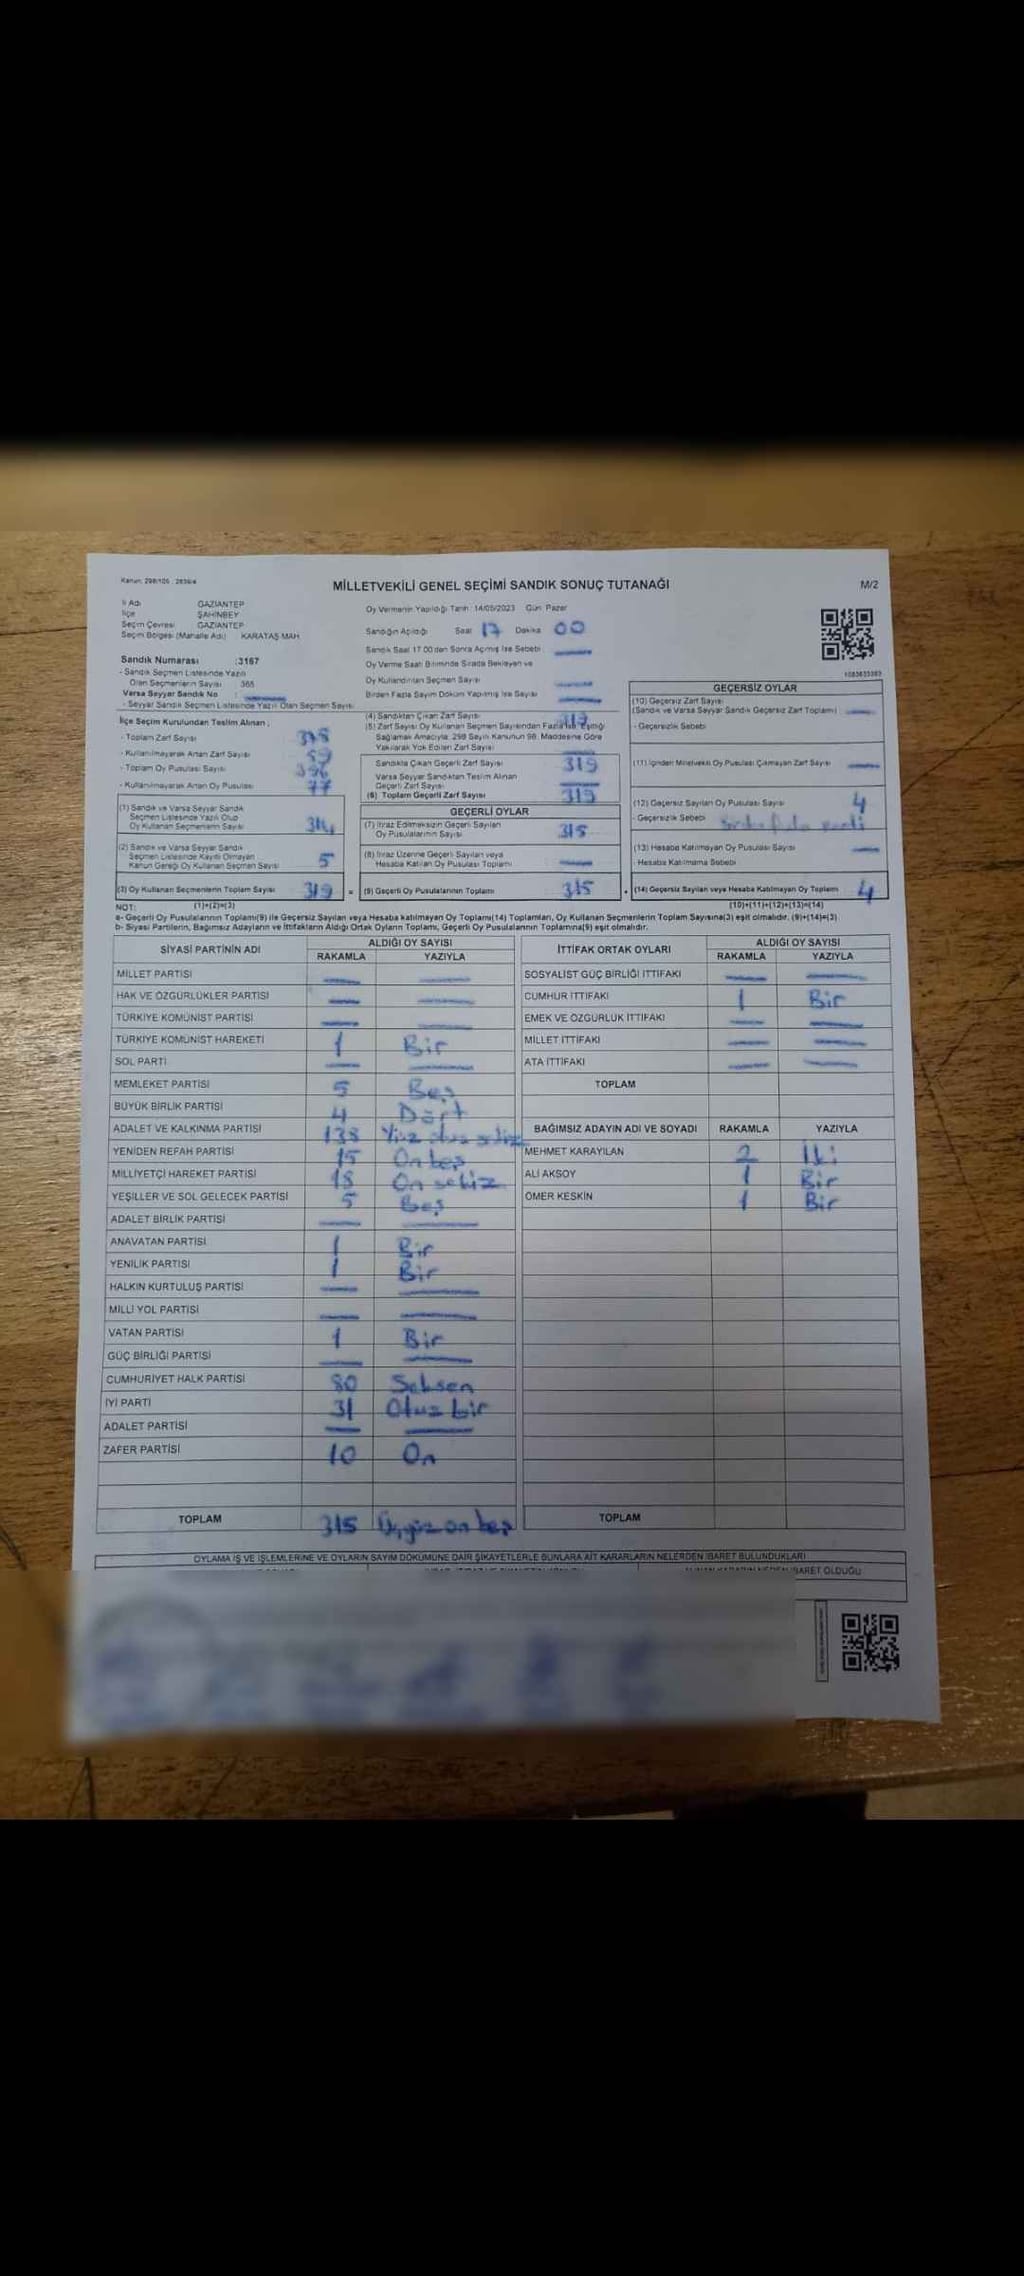 Kanun: 298/105 , 2839/4
MİLLETVEKİLİ GENEL SEÇİMİ SANDIK SONUÇ TUTANAĞI
M/2
İl Adı GAZİANTEP
İlçe ŞAHİNBEY
Seçim Çevresi GAZİANTEP
Seçim Bölgesi (Mahalle Adı) KARATAŞ MAH
Oy Vermenin Yapıldığı Tarih: 14/05/2023 Gün: Pazar
Sandığın Açıldığı Saat 17 Dakika 00
Sandık Saat 17.00'den Sonra Açılmış İse Sebebi
Oy Verme Saati Bitiminde Sırada Bekleyen ve
Oy Kullandırılan Seçmen Sayısı
Birden Fazla Sayım Döküm Yapılmış İse Sayısı
Sandık Numarası :3167
- Sandık Seçmen Listesinde Yazılı
Olan Seçmenlerin Sayısı : 365
Varsa Seyyar Sandık No :
- Seyyar Sandık Seçmen Listesinde Yazılı Olan Seçmen Sayısı
İlçe Seçim Kurulundan Teslim Alınan ;
- Toplam Zarf Sayısı 378
- Kullanılmayarak Artan Zarf Sayısı 59
- Toplam Oy Pusulası Sayısı 396
- Kullanılmayarak Artan Oy Pusulası 77
(1) Sandık ve Varsa Seyyar Sandık
Seçmen Listesinde Yazılı Olup
Oy Kullanan Seçmenlerin Sayısı 314
(2) Sandık ve Varsa Seyyar Sandık
Seçmen Listesinde Kayıtlı Olmayan
Kanun Gereği Oy Kullanan Seçmen Sayısı 5
(3) Oy Kullanan Seçmenlerin Toplam Sayısı 319
(1)+(2)=(3)
(4) Sandıktan Çıkan Zarf Sayısı 319
(5) Zarf Sayısı Oy Kullanan Seçmen Sayısından Fazla İse, Eşitliği
Sağlamak Amacıyla, 298 Sayılı Kanunun 98. Maddesine Göre
Yakılarak Yok Edilen Zarf Sayısı
Sandıkta Çıkan Geçerli Zarf Sayısı 319
Varsa Seyyar Sandıktan Teslim Alınan
Geçerli Zarf Sayısı
(6) Toplam Geçerli Zarf Sayısı 319
GEÇERLİ OYLAR
(7) İtiraz Edilmeksizin Geçerli Sayılan
Oy Pusulalarının Sayısı 315
(8) İtiraz Üzerine Geçerli Sayılan veya
Hesaba Katılan Oy Pusulası Toplamı
= (9) Geçerli Oy Pusulalarının Toplamı 315
1083633383
GEÇERSİZ OYLAR
(10) Geçersiz Zarf Sayısı
(Sandık ve Varsa Seyyar Sandık Geçersiz Zarf Toplamı)
- Geçersizlik Sebebi
(11) İçinden Milletvekili Oy Pusulası Çıkmayan Zarf Sayısı
(12) Geçersiz Sayılan Oy Pusulası Sayısı 4
- Geçersizlik Sebebi
(13) Hesaba Katılmayan Oy Pusulası Sayısı
- Hesaba Katılmama Sebebi
+ (14) Geçersiz Sayılan veya Hesaba Katılmayan Oy Toplamı 4
(10)+(11)+(12)+(13)=(14)
NOT:
a- Geçerli Oy Pusulalarının Toplamı(9) ile Geçersiz Sayılan veya Hesaba katılmayan Oy Toplamı(14) Toplamları, Oy Kullanan Seçmenlerin Toplam Sayısına(3) eşit olmalıdır. (9)+(14)=(3)
b- Siyasi Partilerin, Bağımsız Adayların ve İttifakların Aldığı Ortak Oyların Toplamı, Geçerli Oy Pusulalarının Toplamına(9) eşit olmalıdır.
SİYASİ PARTİNİN ADI ALDIĞI OY SAYISI
RAKAMLA YAZIYLA
MİLLET PARTİSİ
HAK VE ÖZGÜRLÜKLER PARTİSİ
TÜRKİYE KOMÜNİST PARTİSİ
TÜRKİYE KOMÜNİST HAREKETİ 1 Bir
SOL PARTİ
MEMLEKET PARTİSİ 5 Beş
BÜYÜK BİRLİK PARTİSİ 4 Dört
ADALET VE KALKINMA PARTİSİ 138 Yüz otuz sekiz
YENİDEN REFAH PARTİSİ 15 On beş
MİLLİYETÇİ HAREKET PARTİSİ 18 On sekiz
YEŞİLLER VE SOL GELECEK PARTİSİ 5 Beş
ADALET BİRLİK PARTİSİ
ANAVATAN PARTİSİ 1 Bir
YENİLİK PARTİSİ 1 Bir
HALKIN KURTULUŞ PARTİSİ
MİLLİ YOL PARTİSİ
VATAN PARTİSİ 1 Bir
GÜÇ BİRLİĞİ PARTİSİ
CUMHURİYET HALK PARTİSİ 80 Seksen
İYİ PARTİ 31 Otuz bir
ADALET PARTİSİ
ZAFER PARTİSİ 10 On
TOPLAM 315 Üçyüz on beş
İTTİFAK ORTAK OYLARI ALDIĞI OY SAYISI
RAKAMLA YAZIYLA
SOSYALİST GÜÇ BİRLİĞİ İTTİFAKI
CUMHUR İTTİFAKI 1 Bir
EMEK VE ÖZGÜRLÜK İTTİFAKI
MİLLET İTTİFAKI
ATA İTTİFAKI
TOPLAM
BAĞIMSIZ ADAYIN ADI VE SOYADI RAKAMLA YAZIYLA
MEHMET KARAYILAN 2 İki
ALİ AKSOY 1 Bir
ÖMER KESKİN 1 Bir
TOPLAM
OYLAMA İŞ VE İŞLEMLERİNE VE OYLARIN SAYIM DÖKÜMÜNE DAİR ŞİKAYETLERLE BUNLARA AİT KARARLARIN NELERDEN İBARET BULUNDUKLARI